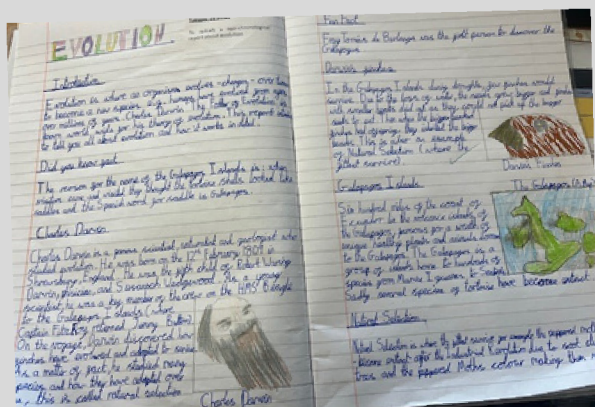 EVOLUTION
Introduction
Evolution is where an organism evolves - changes - over time
to become a new species e.g. humans have evolved from apes
over millions of years. Charles Darwin, 'The Father of Evolution' is
known world wide for his theory of evolution. This report intends
to tell you all about evolution and how it works in detail!
Did you know fact
The reason for the name of the Galapagos Islands is: when
sailors came and visited they thought the tortoise shells looked like
saddles and the Spanish word for saddle is Galapagos.
Charles Darwin
Charles Darwin is a famous scientist, naturalist and geologist who
studied evolution. He was born on the 12th February 1809 in
Shrewsbury, England. He was the fifth child of Robert Waring
Darwin, physician, and Sussanah Wedgewood. As a young
scientist, he was a key member of the crew on the HMS Beagle
to the Galapagos Islands (where
Captain FitzRoy returned Jemmy Button).
On the voyage, Darwin discovered how
finches have evolved and adapted to survive.
As a matter of fact, he studied many
species and how they have adapted over
this is called natural selection.
Charles Darwin
Fun Fact
Fray Tomás de Berlanga was the first person to discover the
Galapagos.
Darwin finches
In the Galapagos Islands during droughts, few finches would
survive. Due to the loss of water, the seeds grew bigger and finches
with smaller beaks died out as they could not pick up the bigger
seeds to eat. Then when the bigger beaked
finches had offspring, they inherited the bigger
beaks. This is also an example
of Natural Selection (where the
fittest survive)
Darwin Finches
Galapagos Islands
The Galapagos
Six hundred miles off the coast of
Ecuador lie the volcanic islands of
the Galapagos, famous for a wealth of
unique healthy plants and animals
to the Galapagos. The Galapagos is a
group of islands home to hundreds of
species from Marine Iguanas to
Sadly several species of tortoise have become extinct.
Natural Selection
Natural Selection is where the fittest survive for example the peppered moth
became extinct after the Industrial Revolution due to soot
trees and the peppered Moths colour making them